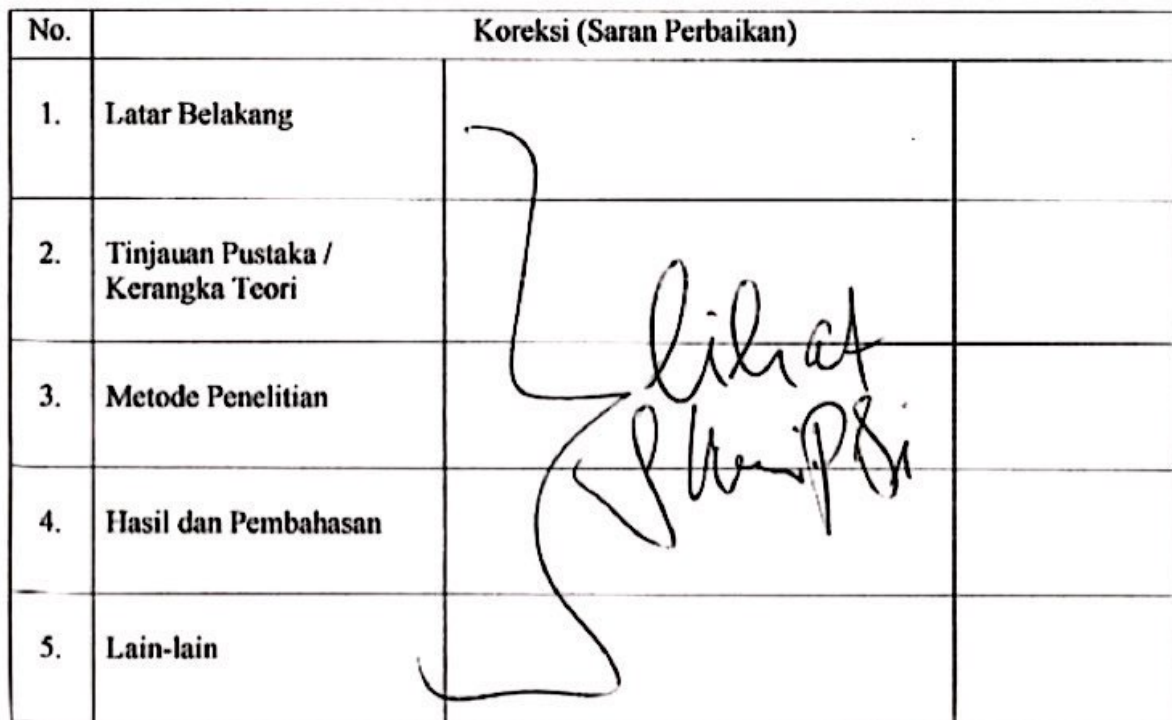 No. Koreksi (Saran Perbaikan)
1. Latar Belakang
2. Tinjauan Pustaka /
Kerangka Teori
lihat
3. Metode Penelitian
Skripsi
4. Hasil dan Pembahasan
5. Lain-lain